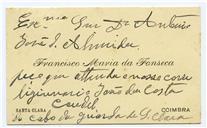 Exc.mo Snr Dr Antonio
José d'Almeida
Francisco Maria da Fonseca
peço que attenda o nosso corre
ligionario João da Costa
SANTA CLARA COIMBRA
cabo da guarda de S. Clara